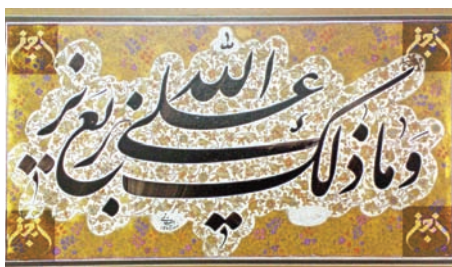 وما ذلك على الله بعزیز